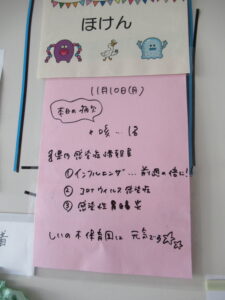 ほけん
11月10日(月)
本日の病欠
咳…1名
先週の感染症情報
①インフルエンザ…前週の倍に!
②コロナウイルス感染症
③感染性胃腸炎
しいの木保育園は元気です